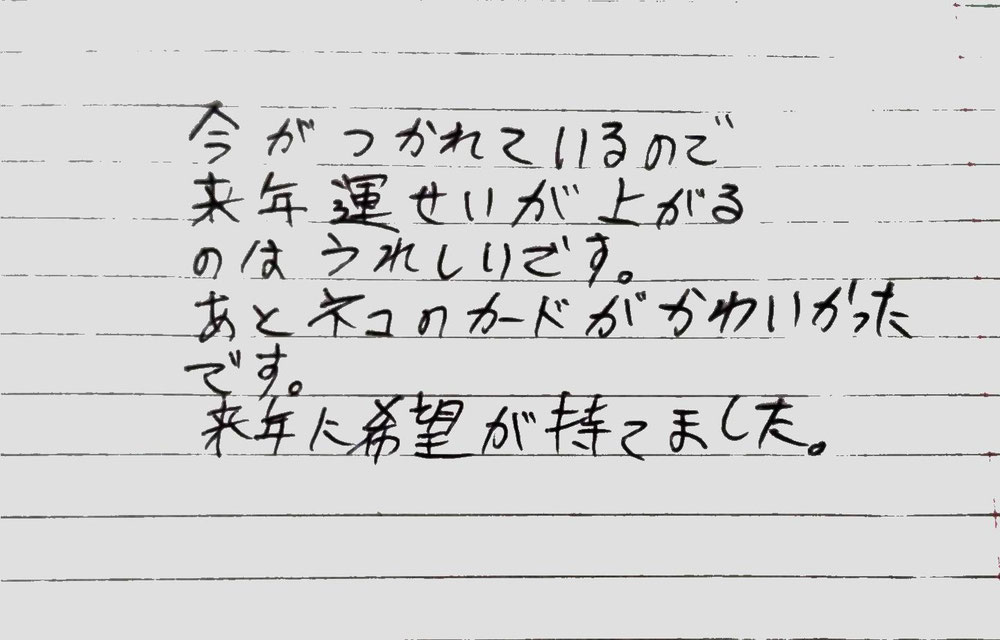 今がつかれているので
来年運せいが上がる
のはうれしいです。
あとネコのカードがかわいかった
です。
来年に希望が持てました。